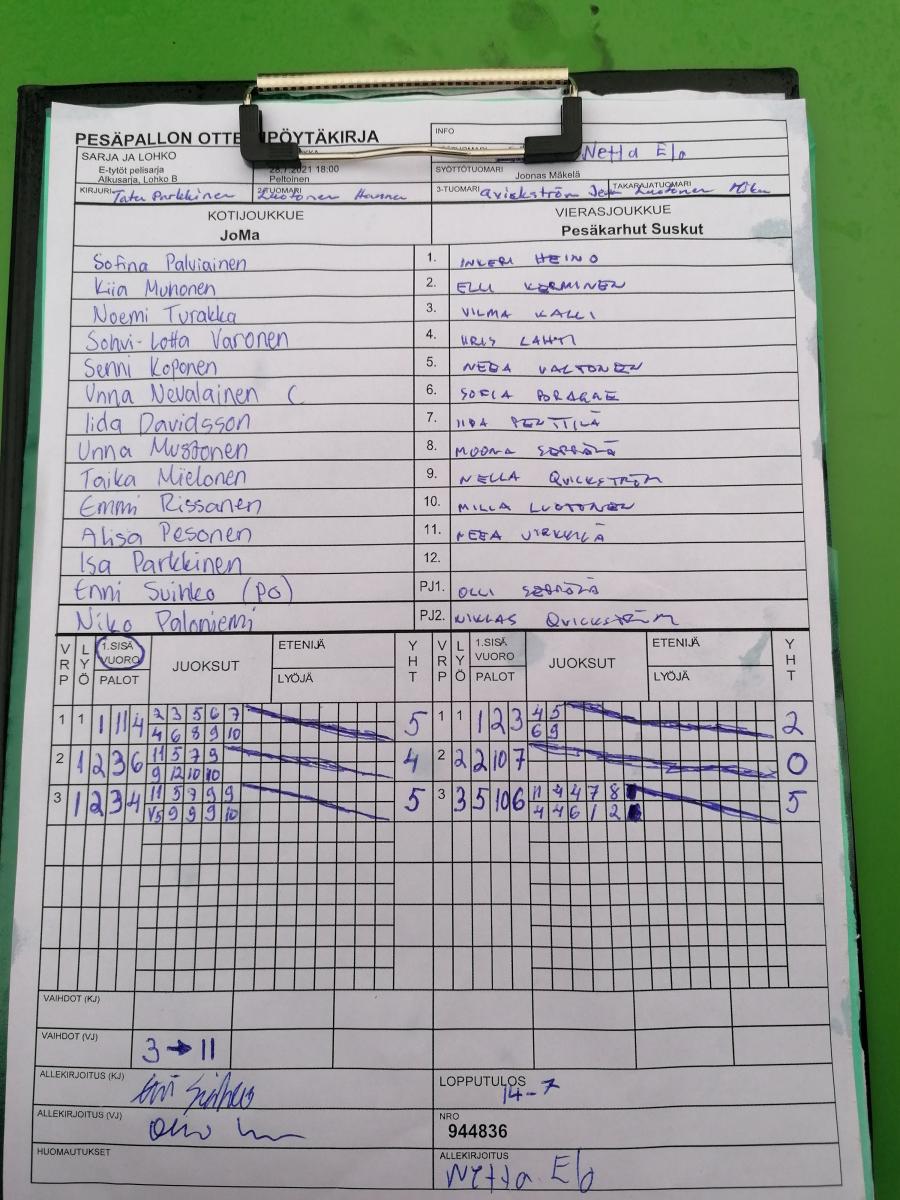 PESÄPALLON OTTE PÖYTÄKIRJA
INFO
SARJA JA LOHKO
E-tytöt pelisarja
Alkusarja, Lohko B
28.7.2021 18:00
Peltoinen
Netta Elo
SYÖTTÖTUOMARI Joonas Mäkelä
KIRJURI Tatu Parkkinen 2-TUOMARI Luotonen Hannu 3-TUOMARI TAKARAJATUOMARI Luotonen Miku
KOTIJOUKKUE VIERASJOUKKUE
JoMa Pesäkarhut Suskut
Sofina Palviainen 1. INKERI HEINO
Kiia Muhonen 2. ELLI KERMINEN
Noemi Turakka 3. VILMA KALLI
Sohvi-Lotta Varonen 4. LAHTI
Senni Koponen 5. NEEA VALTONEN
Unna Nevalainen C 6. SOFIA
Iida Davidsson 7. IIDA PENTTILÄ
Unna Mustonen 8. MOONA SEPPÄLÄ
Taika Mielonen 9. NELLA QUICKSTRÖM
Emmi Rissanen 10. MILLA LUOTONEN
Alisa Pesonen 11. NEEA VIRKKILÄ
Isa Parkkinen 12.
Enni Suihko (PO) PJ1. OLLI SEPPÄLÄ
Niko Paloniemi PJ2. NIKLAS QUICKSTRÖM
VRP LYÖ 1.SISÄ VUORO PALOT JUOKSUT ETENIJÄ LYÖJÄ YHT VRP LYÖ 1.SISÄ VUORO PALOT JUOKSUT ETENIJÄ LYÖJÄ YHT
1 1 1 11 4 2 3 5 6 7 5 1 1 1 2 3 4 5 2
4 6 8 9 10 6 9
2 1 2 3 6 11 5 7 9 4 2 2 2 10 7 0
9 12 10 10
3 1 2 3 4 11 5 7 9 9 5 3 3 5 10 6 11 4 4 7 8 5
V5 9 9 9 10 4 4 6 1 2
VAIHDOT (KJ)
VAIHDOT (VJ)
3 → 11
ALLEKIRJOITUS (KJ) LOPPUTULOS
14-7
ALLEKIRJOITUS (VJ) NRO
944836
HUOMAUTUKSET ALLEKIRJOITUS
Netta Elo